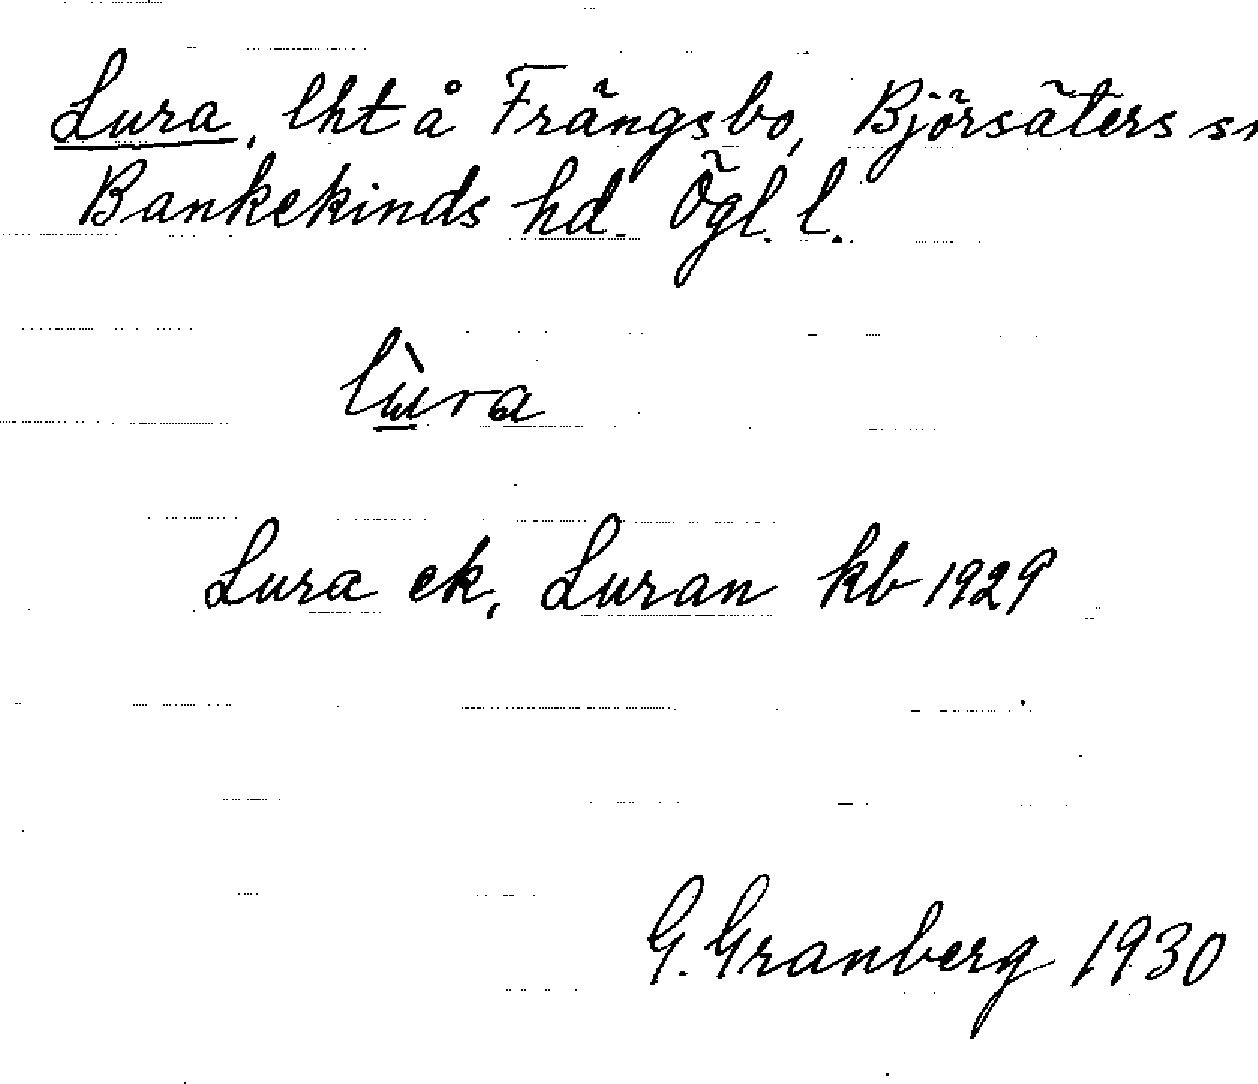 Lura, lht å Frängsbo, Björsäters sn
Bankekinds hd. Ögl. l.
lùra
Lura ek, Luran kb 1929
G. Granberg 1930